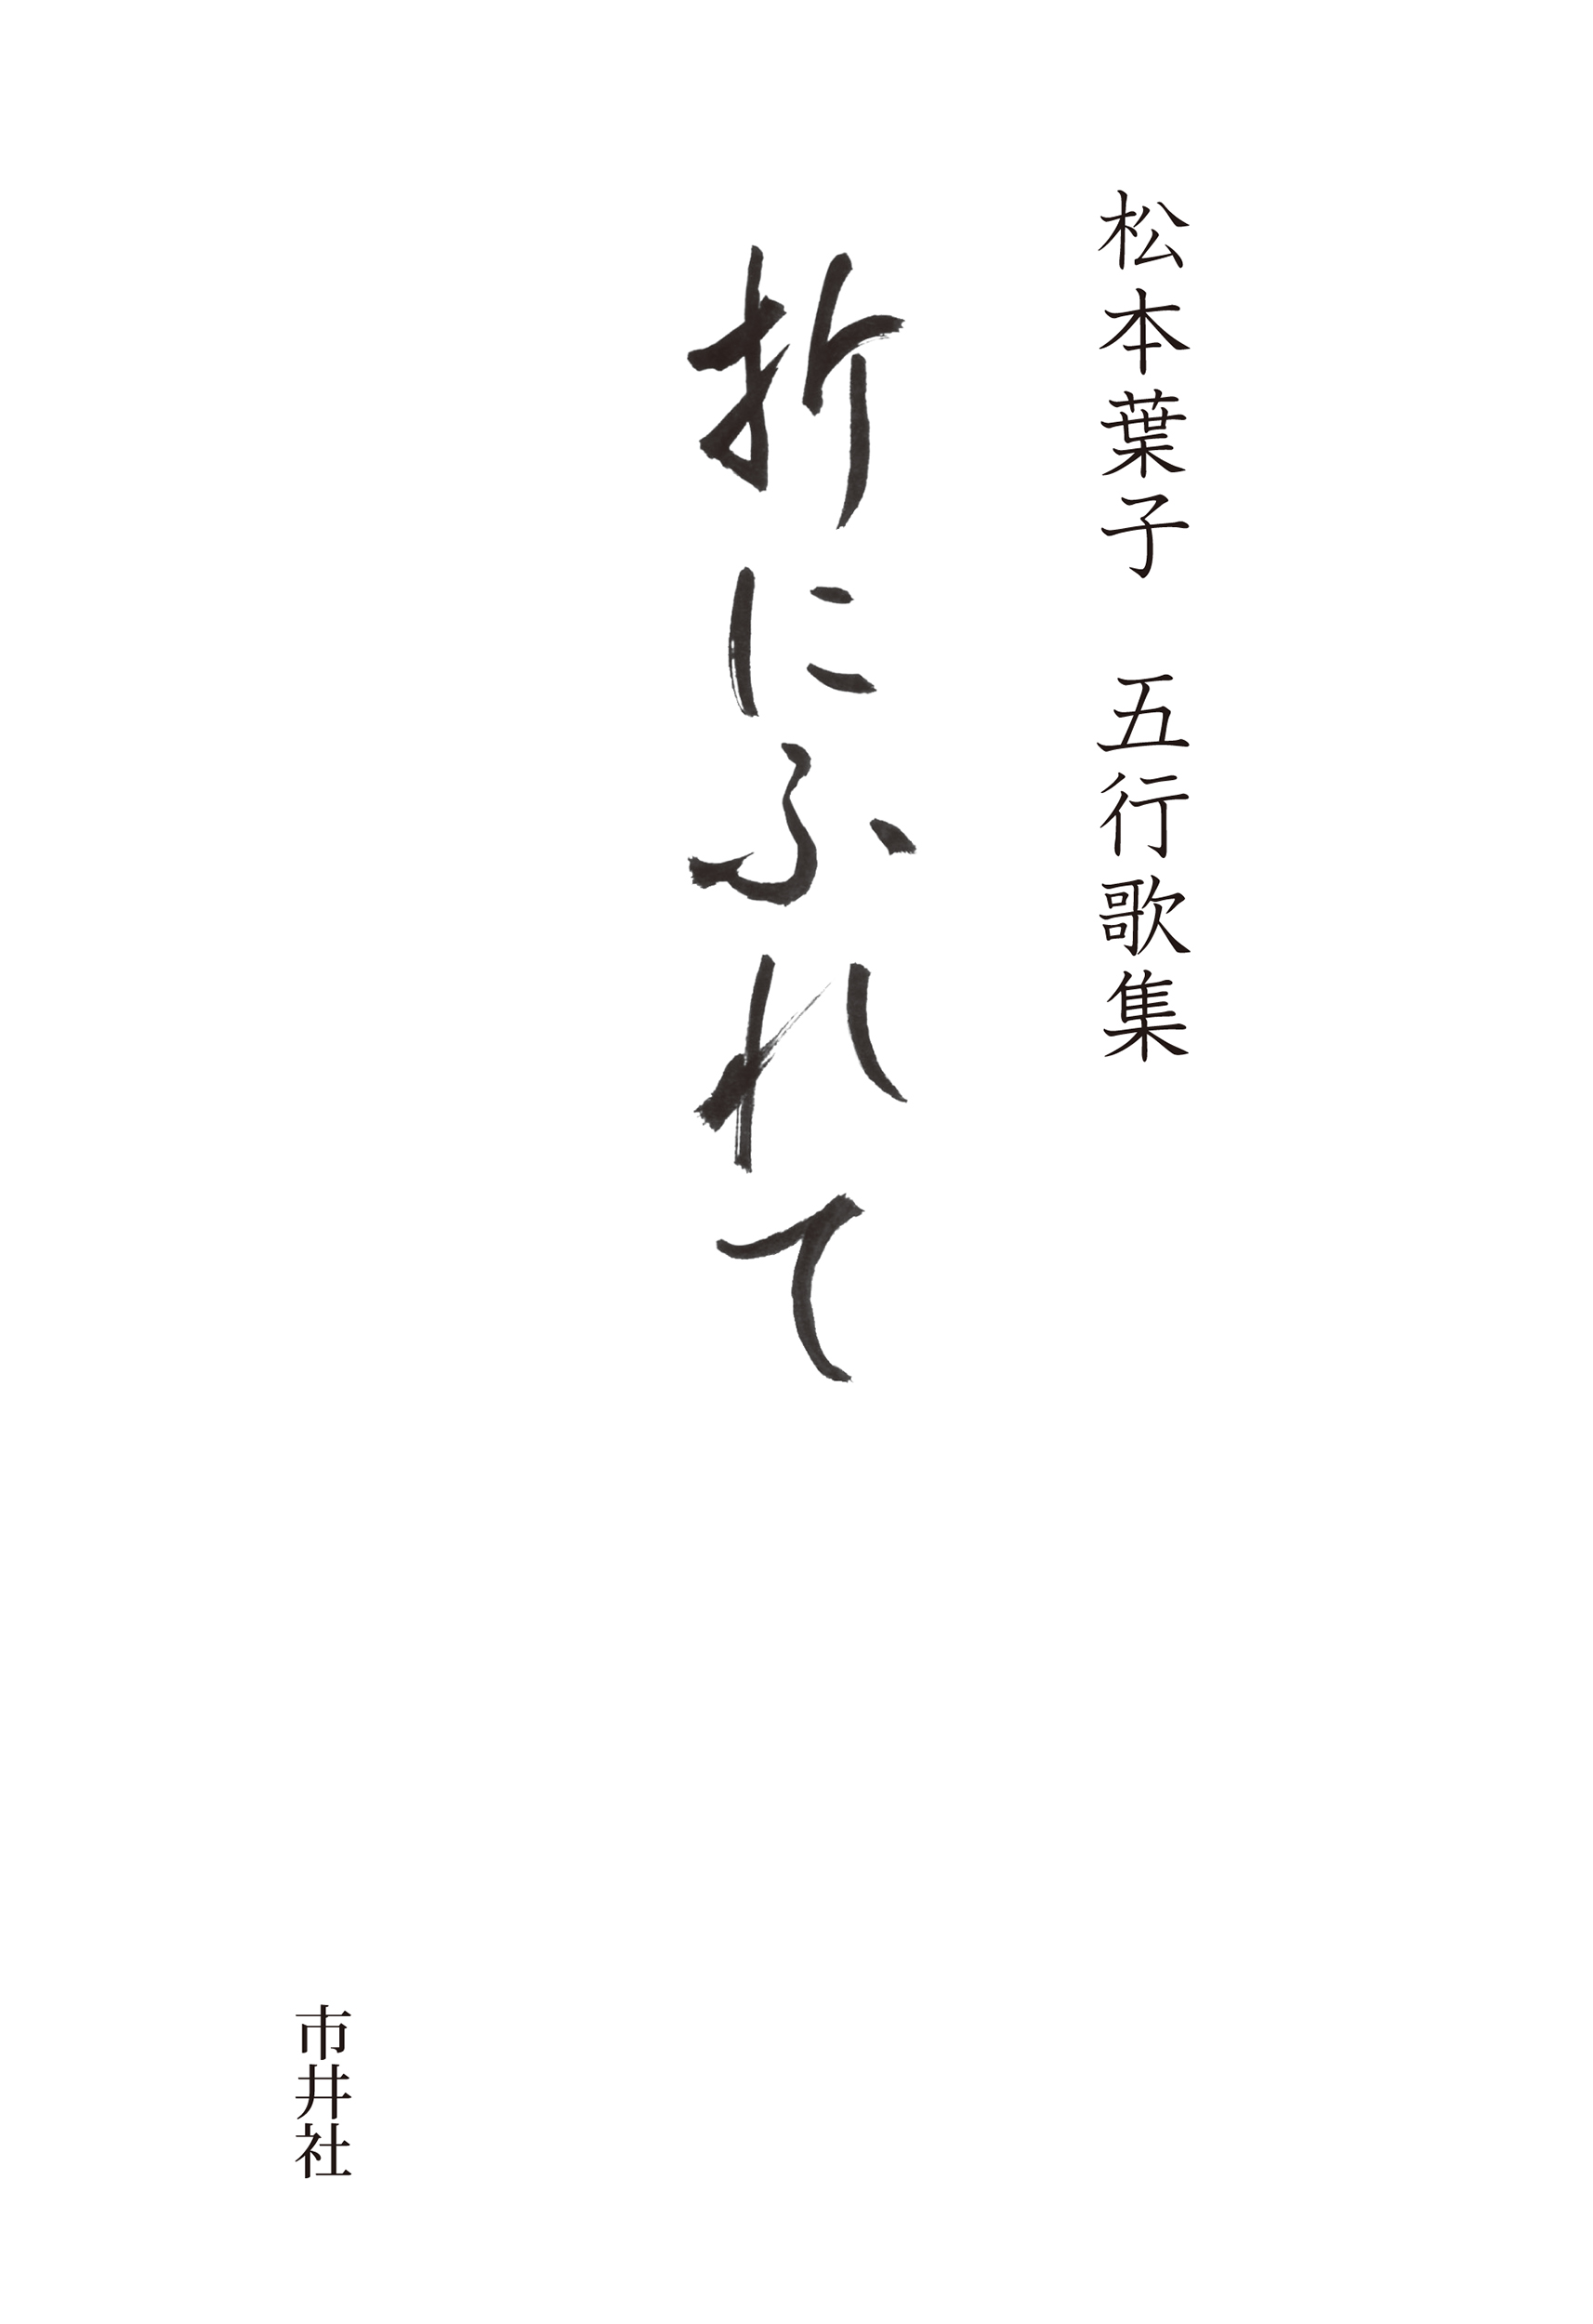 松本葉子　五行歌集
折にふれて
市井社